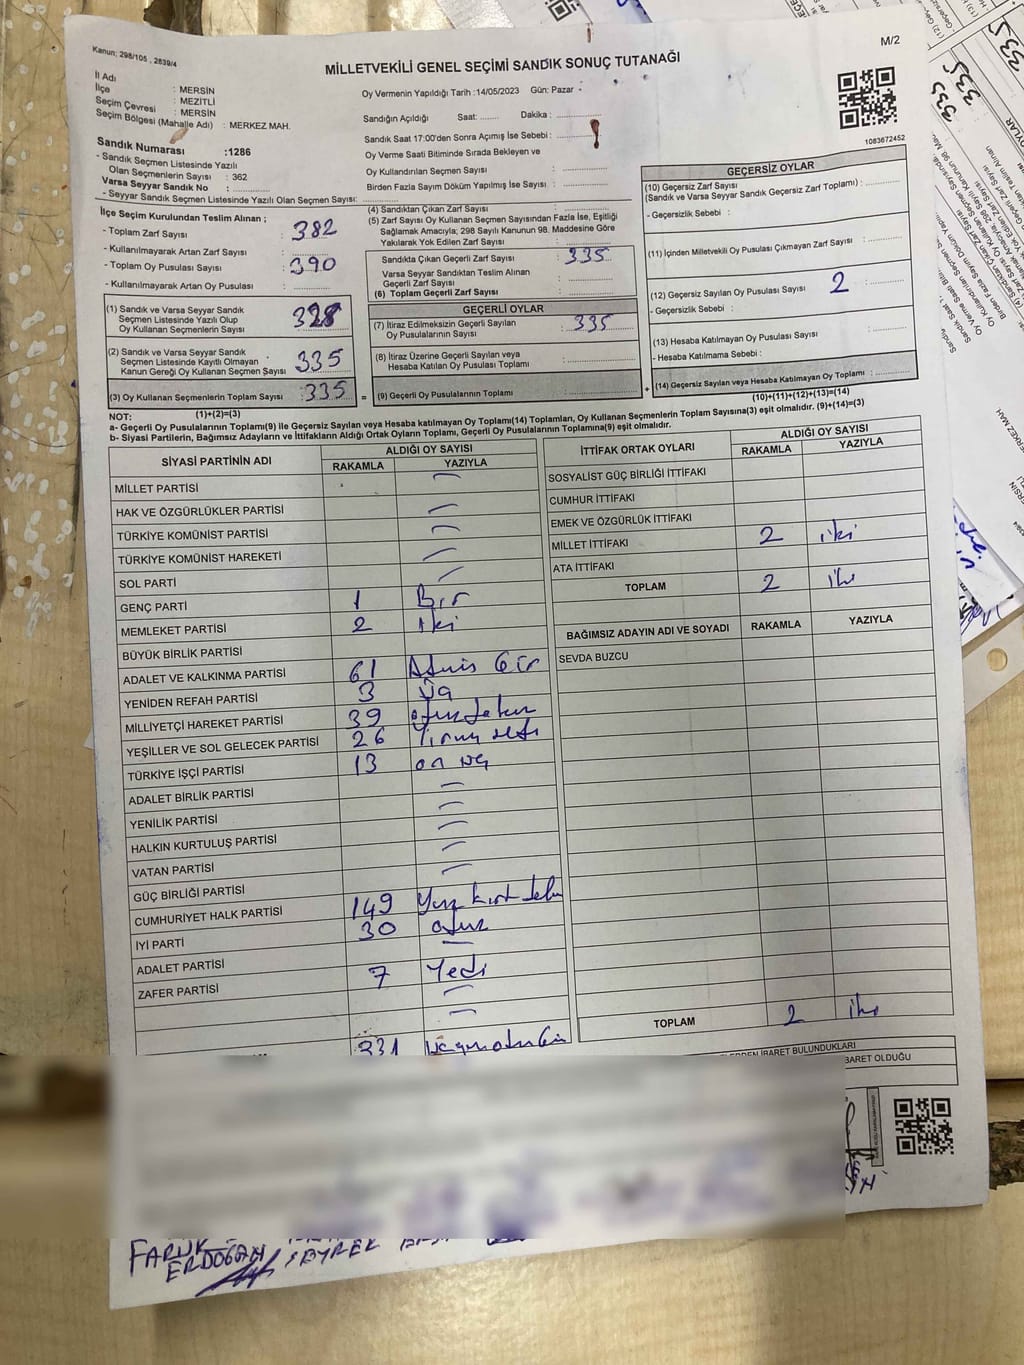 Kanun; 298/105 , 2839/4
M/2
MİLLETVEKİLİ GENEL SEÇİMİ SANDIK SONUÇ TUTANAĞI
İl Adı : MERSİN
İlçe : MEZİTLİ
Seçim Çevresi : MERSİN
Seçim Bölgesi (Mahalle Adı) : MERKEZ MAH.
Sandık Numarası :1286
- Sandık Seçmen Listesinde Yazılı
Olan Seçmenlerin Sayısı : 362
Varsa Seyyar Sandık No :
- Seyyar Sandık Seçmen Listesinde Yazılı Olan Seçmen Sayısı:
Oy Vermenin Yapıldığı Tarih :14/05/2023 Gün: Pazar -
Sandığın Açıldığı Saat: Dakika :
Sandık Saat 17:00'den Sonra Açımış İse Sebebi :
Oy Verme Saati Bitiminde Sırada Bekleyen ve
Oy Kullandırılan Seçmen Sayısı :
Birden Fazla Sayım Döküm Yapılmış İse Sayısı :
1083672452
İlçe Seçim Kurulundan Teslim Alınan ;
- Toplam Zarf Sayısı : 382
- Kullanılmayarak Artan Zarf Sayısı :
- Toplam Oy Pusulası Sayısı : 390
- Kullanılmayarak Artan Oy Pusulası :
(1) Sandık ve Varsa Seyyar Sandık
Seçmen Listesinde Yazılı Olup
Oy Kullanan Seçmenlerin Sayısı :
(2) Sandık ve Varsa Seyyar Sandık
Seçmen Listesinde Kayıtlı Olmayan
Kanun Gereği Oy Kullanan Seçmen Sayısı : 335
(3) Oy Kullanan Seçmenlerin Toplam Sayısı : 335 =
(4) Sandıktan Çıkan Zarf Sayısı :
(5) Zarf Sayısı Oy Kullanan Seçmen Sayısından Fazla İse, Eşitliği
Sağlamak Amacıyla; 298 Sayılı Kanunun 98. Maddesine Göre
Yakılarak Yok Edilen Zarf Sayısı :
Sandıkta Çıkan Geçerli Zarf Sayısı : 335
Varsa Seyyar Sandıktan Teslim Alınan
Geçerli Zarf Sayısı :
(6) Toplam Geçerli Zarf Sayısı :
GEÇERLİ OYLAR
(7) İtiraz Edilmeksizin Geçerli Sayılan
Oy Pusulalarının Sayısı : 335
(8) İtiraz Üzerine Geçerli Sayılan veya
Hesaba Katılan Oy Pusulası Toplamı :
(9) Geçerli Oy Pusulalarının Toplamı : +
GEÇERSİZ OYLAR
(10) Geçersiz Zarf Sayısı
(Sandık ve Varsa Seyyar Sandık Geçersiz Zarf Toplamı) :
- Geçersizlik Sebebi :
(11) İçinden Milletvekili Oy Pusulası Çıkmayan Zarf Sayısı :
(12) Geçersiz Sayılan Oy Pusulası Sayısı : 2
- Geçersizlik Sebebi :
(13) Hesaba Katılmayan Oy Pusulası Sayısı :
- Hesaba Katılmama Sebebi :
(14) Geçersiz Sayılan veya Hesaba Katılmayan Oy Toplamı :
(10)+(11)+(12)+(13)=(14)
NOT: (1)+(2)=(3)
a- Geçerli Oy Pusulalarının Toplamı(9) ile Geçersiz Sayılan veya Hesaba katılmayan Oy Toplamı(14) Toplamları, Oy Kullanan Seçmenlerin Toplam Sayısına(3) eşit olmalıdır. (9)+(14)=(3)
b- Siyasi Partilerin, Bağımsız Adayların ve İttifakların Aldığı Ortak Oyların Toplamı, Geçerli Oy Pusulalarının Toplamına(9) eşit olmalıdır.
SİYASİ PARTİNİN ADI ALDIĞI OY SAYISI
RAKAMLA YAZIYLA
MİLLET PARTİSİ
HAK VE ÖZGÜRLÜKLER PARTİSİ
TÜRKİYE KOMÜNİST PARTİSİ
TÜRKİYE KOMÜNİST HAREKETİ
SOL PARTİ
GENÇ PARTİ 1 Bir
MEMLEKET PARTİSİ 2 iki
BÜYÜK BİRLİK PARTİSİ
ADALET VE KALKINMA PARTİSİ 61 Atmış bir
YENİDEN REFAH PARTİSİ 3 üç
MİLLİYETÇİ HAREKET PARTİSİ 39 otuz dokuz
YEŞİLLER VE SOL GELECEK PARTİSİ 26 Yirmi altı
TÜRKİYE İŞÇİ PARTİSİ 13 on üç
ADALET BİRLİK PARTİSİ
YENİLİK PARTİSİ
HALKIN KURTULUŞ PARTİSİ
VATAN PARTİSİ
GÜÇ BİRLİĞİ PARTİSİ
CUMHURİYET HALK PARTİSİ 149 Yüz kırk dokuz
İYİ PARTİ 30 otuz
ADALET PARTİSİ
ZAFER PARTİSİ 7 Yedi
331 üçyüzotuzbir
İTTİFAK ORTAK OYLARI ALDIĞI OY SAYISI
RAKAMLA YAZIYLA
SOSYALİST GÜÇ BİRLİĞİ İTTİFAKI
CUMHUR İTTİFAKI
EMEK VE ÖZGÜRLÜK İTTİFAKI
MİLLET İTTİFAKI 2 iki
ATA İTTİFAKI
TOPLAM 2 iki
BAĞIMSIZ ADAYIN ADI VE SOYADI RAKAMLA YAZIYLA
SEVDA BUZCU
TOPLAM 2 iki
İBARET BULUNDUKLARI
BARET OLDUĞU
FARUK
ERDOĞAN SEYREK
335
335
335